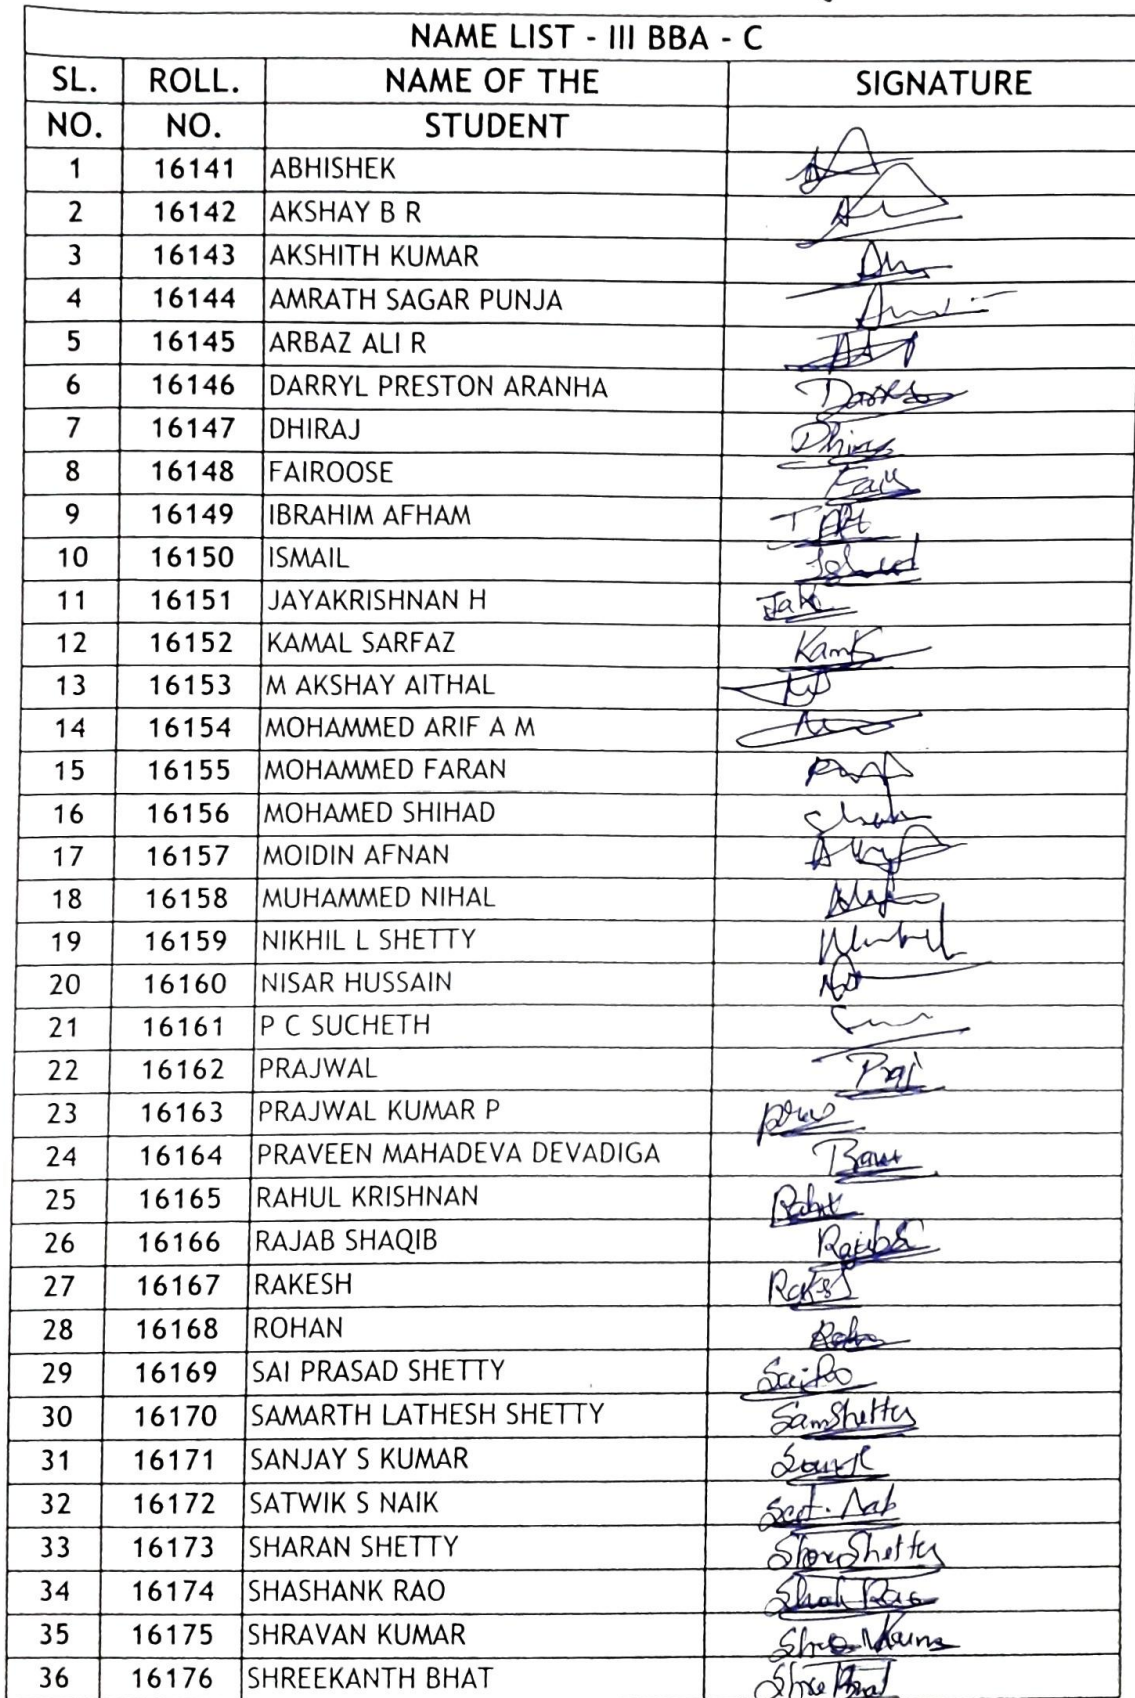 NAME LIST - III BBA - C
SL. ROLL. NAME OF THE SIGNATURE
NO. NO. STUDENT
1 16141 ABHISHEK
2 16142 AKSHAY B R
3 16143 AKSHITH KUMAR
4 16144 AMRATH SAGAR PUNJA
5 16145 ARBAZ ALI R
6 16146 DARRYL PRESTON ARANHA
7 16147 DHIRAJ
8 16148 FAIROOSE
9 16149 IBRAHIM AFHAM
10 16150 ISMAIL
11 16151 JAYAKRISHNAN H
12 16152 KAMAL SARFAZ
13 16153 M AKSHAY AITHAL
14 16154 MOHAMMED ARIF A M
15 16155 MOHAMMED FARAN
16 16156 MOHAMED SHIHAD
17 16157 MOIDIN AFNAN
18 16158 MUHAMMED NIHAL
19 16159 NIKHIL L SHETTY
20 16160 NISAR HUSSAIN
21 16161 P C SUCHETH
22 16162 PRAJWAL Praj
23 16163 PRAJWAL KUMAR P
24 16164 PRAVEEN MAHADEVA DEVADIGA
25 16165 RAHUL KRISHNAN
26 16166 RAJAB SHAQIB
27 16167 RAKESH
28 16168 ROHAN
29 16169 SAI PRASAD SHETTY
30 16170 SAMARTH LATHESH SHETTY SamShetty
31 16171 SANJAY S KUMAR
32 16172 SATWIK S NAIK
33 16173 SHARAN SHETTY
34 16174 SHASHANK RAO
35 16175 SHRAVAN KUMAR
36 16176 SHREEKANTH BHAT